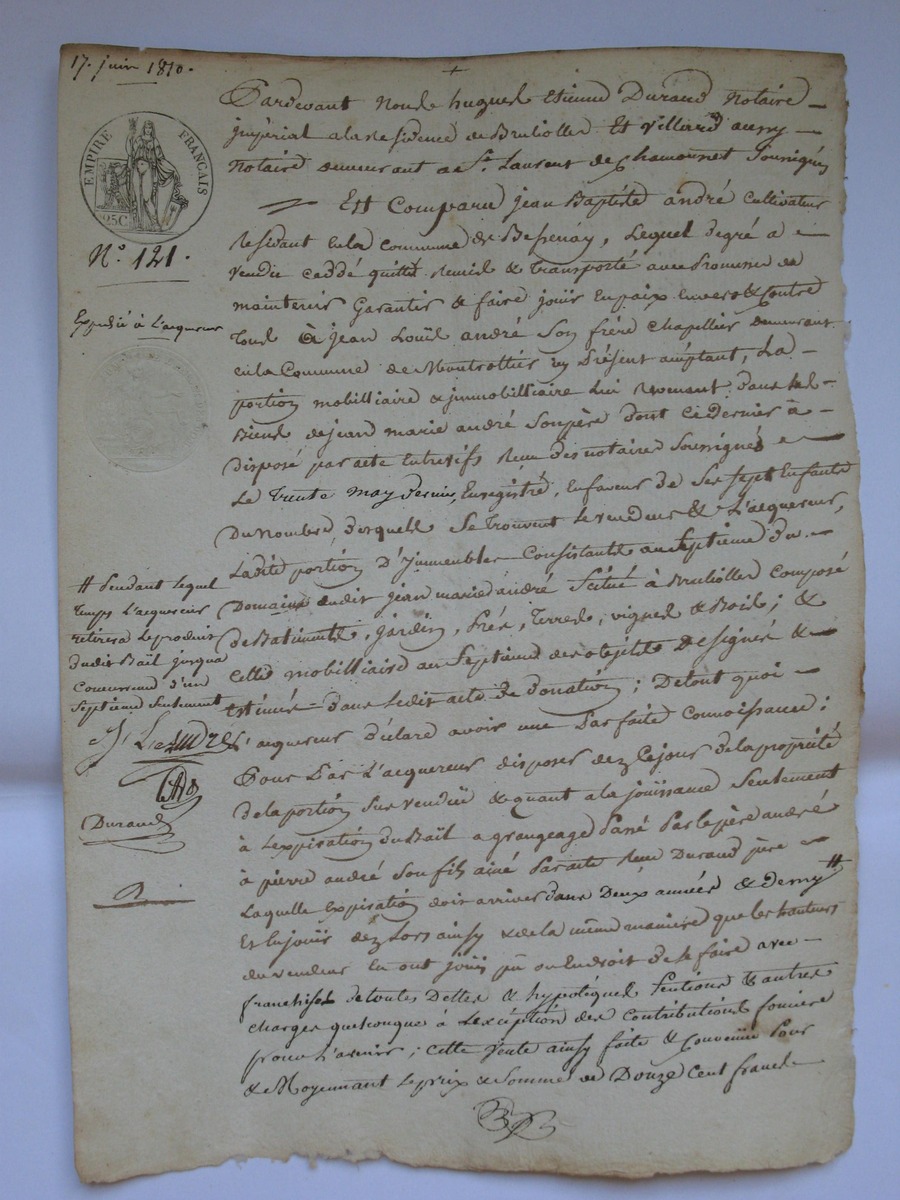 17. juin 1810.
EMPIRE FRANÇAIS
25C
N.° 121.
Expedié à L'acquereur
Pardevant Nous hugues Etienne Durand Notaire
imperial ala residence de Brullolles Et Villard aussy
Notaire demeurant a St. Laurent de Chamousset Soussignés
Est Comparu jean Baptiste andré Cultivateur
Residant en la Commune de Bessenay, Lequel degré a
vendu ceddé quitté Remis & transporté avec Promesse de
maintenir Garantir & faire jouir En paix Envers & Contre
Tous à jean Louis andré Son frère Chapellier Demeurant
en la Commune de Montrottier icy Présent acceptant, La
portion mobilliaire & immobilliaire lui Revenant dans les
Biens de jean marie andré Son père dont ce Dernier à
disposé par acte Entrevifs Reçu des notaires Soussignés
Le Trente may dernier, Enregistré, En faveur de Ses Sept Enfants
Du Nombre desquels Se Trouvent Le vendeur & L'acquereur,
Ladite portion D'jmmeubles Consistante au Septieme du
Domaine dudit jean marie andré Scitué à Brullolles Composé
de Batiments, jardin, Prés, Terres, vignes & Bois; &
Celle mobilliaire au Septieme des objets Designés &
Estimés dans Ledit acte de donation; De tout quoi
L'acquereur déclare avoir une Parfaite Connoissance;
Pour Par L'acquereur disposer dez Ce jour de la propriété
de la portion Sus vendüe & quant a la joüissance Seulement
à L'expiration du Bail a grangeage Passé Par le père andré
à pierre andré Son fils ainé Par acte Reçu Durand père
Laquelle Expiration doit arriver dans Deux années & demy #
Et En joüir dez Lors ainsy & de la même maniere que les hauteurs
du vendeur En ont joüi pû ou En droit de le faire avec
franchises de toutes Dettes & hypotéques Pentions & autres
charges quelconque à L'exception des Contributions fonciere
pour L'avenir; cette Vente ainsy faite & Convenüe Pour
& Moyennant Le prix & Somme de Douze Cent francs
# Pendant Lequel
Temps L'acquereur
retirera Le produit
dudit Bail jusqua
Concurrence d'un
Septieme Seulement
J. L. andre
Durand